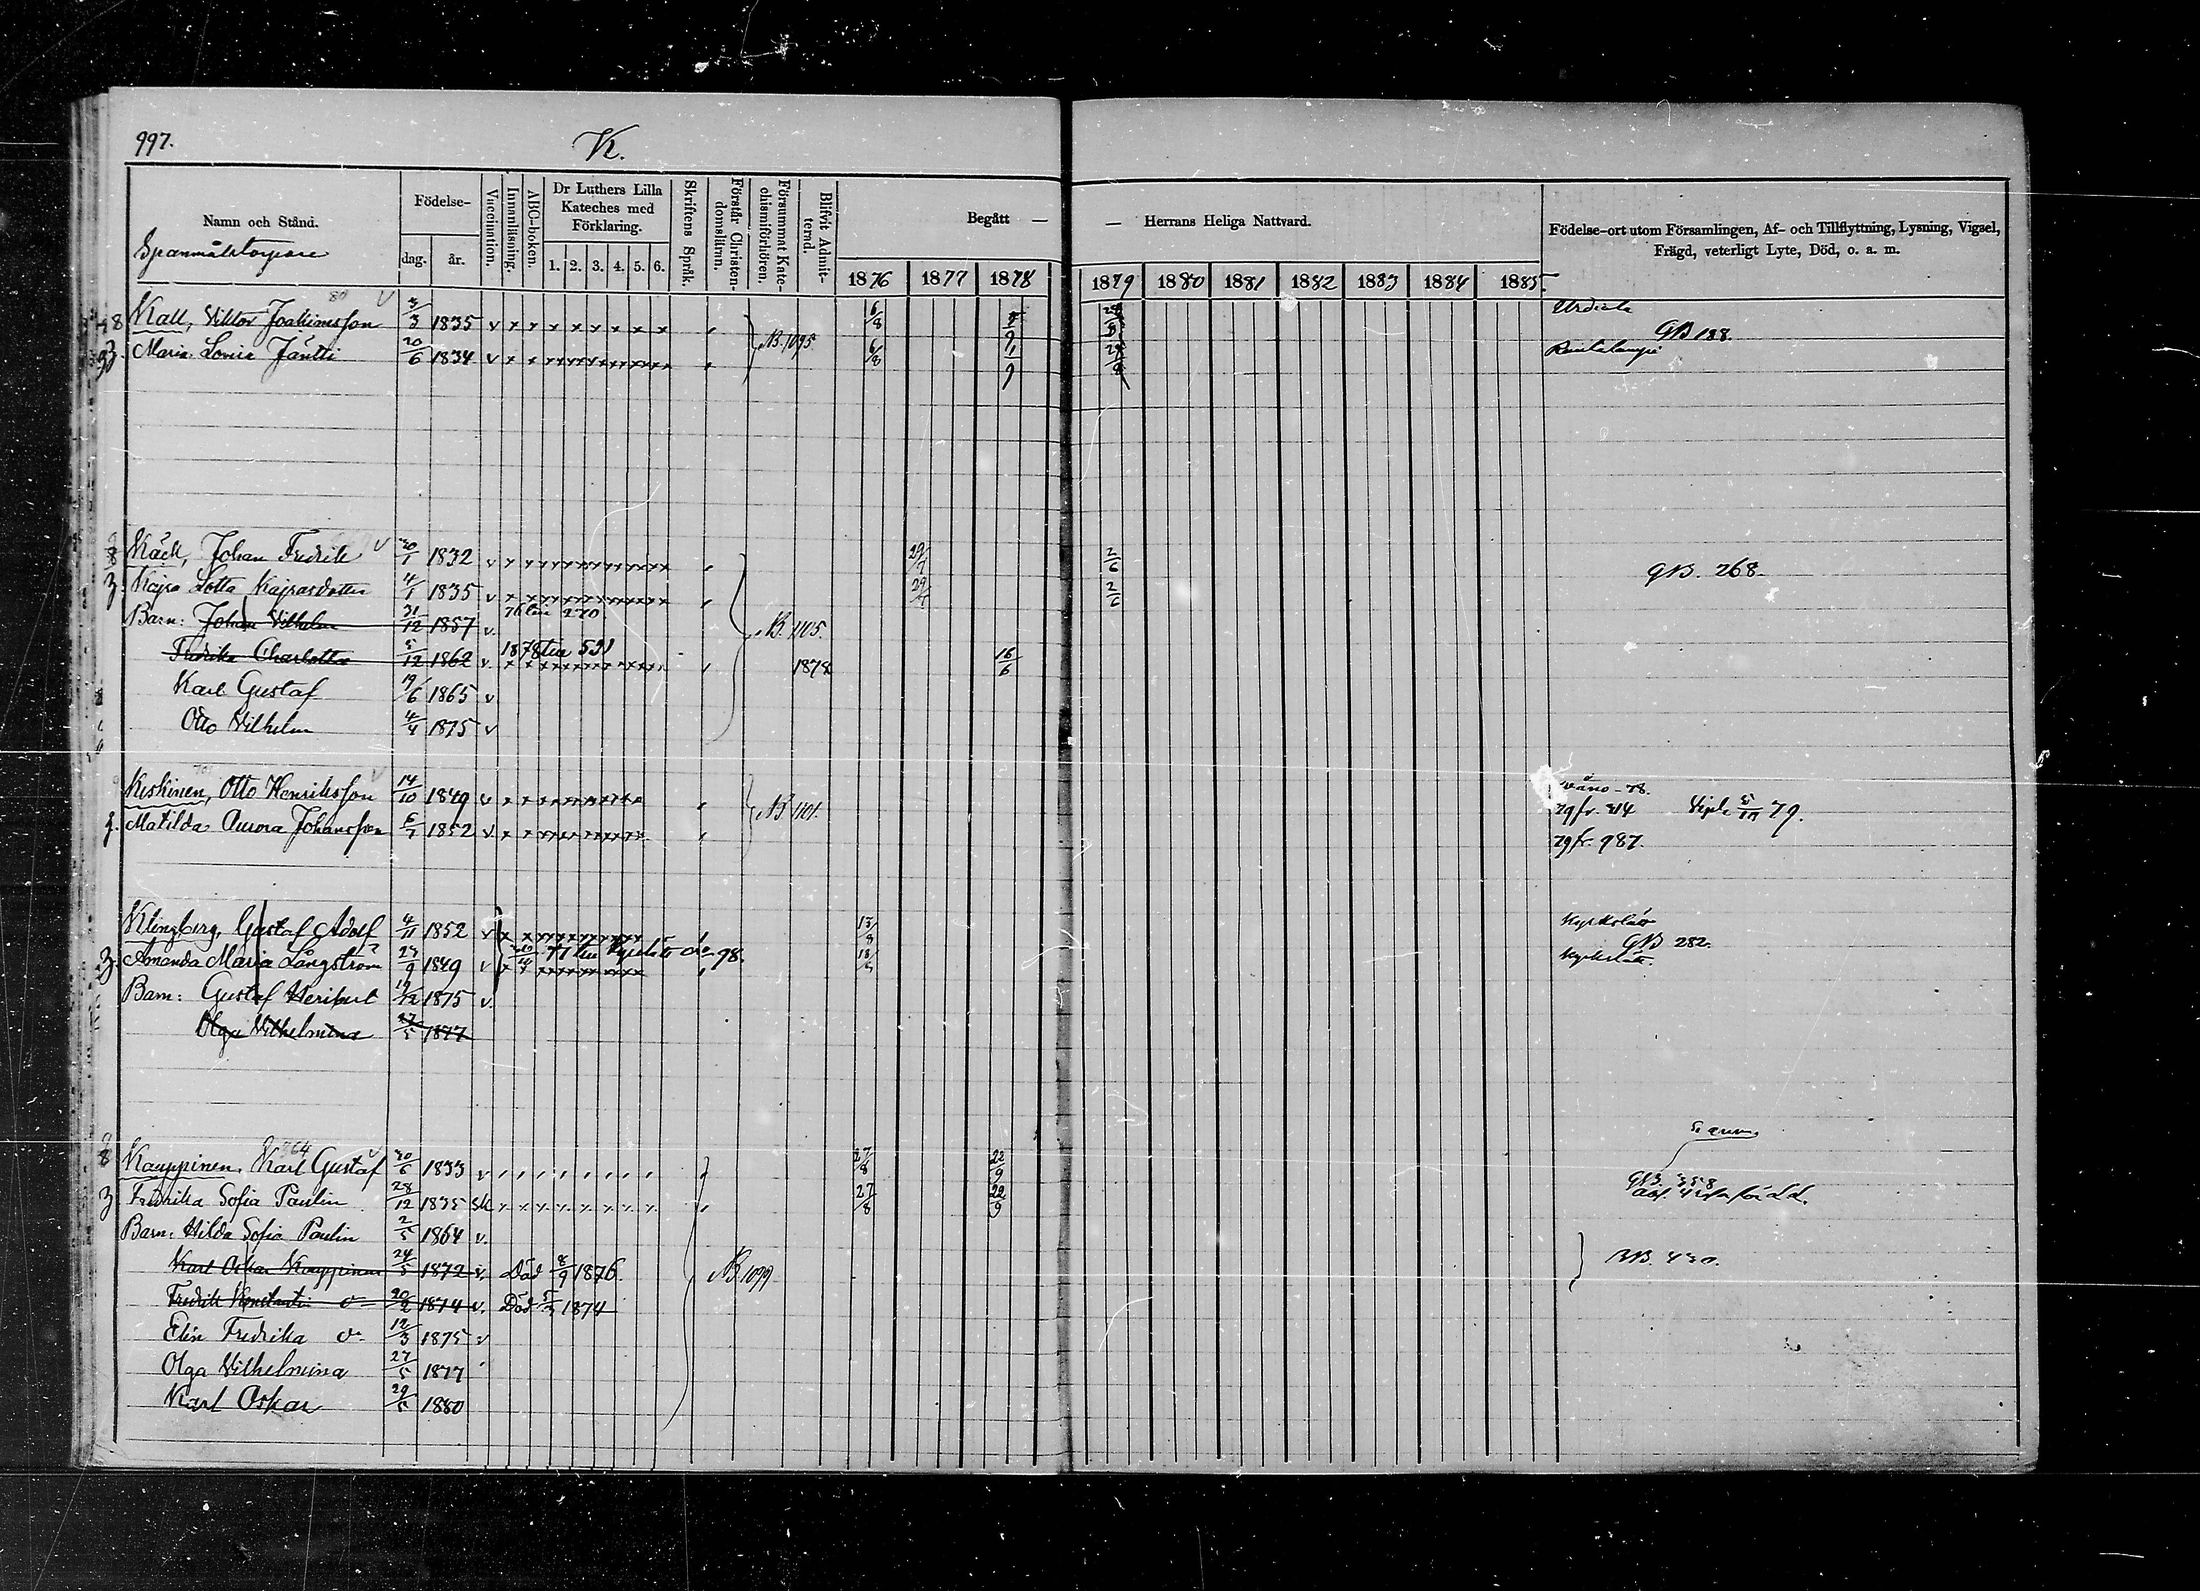 997.
K.
Namn och Stånd.
Födelse-
dag.
år.
Vaccination.
Innanläsning.
ABC-boken.
Dr Luthers Lilla Kateches med Förklaring.
1. 2. 3. 4. 5. 6.
Skriftens Språk.
Förstår Christendomslärnn.
Försummat Katechismiförhören.
Blifvit Admitternd.
Begått —
— Herrans Heliga Nattvard.
1876 1877 1878 1879 1880 1881 1882 1883 1884 1885.
Födelse-ort utom Församlingen, Af- och Tillflyttning, Lysning, Vigsel,
Frägd, veterligt Lyte, Död, o. a. m.
Kall, Viktor Joakimsson 3/3 1835 v B. 1095 6/8 Urdiala
GB 188.
Maria Lovia Jäntti 20/6 1834 v 6/8 Rautalampi
Käck, Johan Fredrik 30/1 1832 v 29/7 2/6 GB. 268.
Kajsa Lotta Kajsasdotter 4/1 1835 v 29/7 2/6
Barn: Johan Vilhelm 31/12 1857 v. 76 till 270 B. 1105.
Fredrika Charlotta 5/12 1862 v. 1878 till 591 1878 16/6
Karl Gustaf 19/6 1865 v
Otto Vilhelm 4/4 1875 v
Kiskinen, Otto Henriksson 14/10 1849 v B 1101. Wånå - 78.
79 fr. 314 79.
Matilda Aurora Johansson 6/7 1852 v 79 fr. 987.
Klingberg, Gustaf Adolf 4/11 1852 v 13/8 Kyrkslätt
GB 282.
Amanda Maria Långström 23/9 1849 v 77 till Kyrkslätt 98. Kyrkslätt.
Barn: Gustaf Heribert 19/12 1875 v.
Olga Vilhelmina 27/5 1877
Kauppinen, Karl Gustaf 30/6 1833 v 27/8 22/9
GB. 358
Fredrika Sofia Paulin 28/12 1835 sk 27/8 22/9
Barn: Hilda Sofia Paulin 2/5 1864 v.
Karl Oskar Kauppinen 24/5 1872 v. Död 8/9 1876. B. 1099 BB. 430.
Fredrik Konstantin d:o 20/2 1874 v. Död 5/3 1874
Elin Fredrika d:o 12/3 1875 v
Olga Vilhelmina 27/5 1877
Karl Oskar 29/5 1880